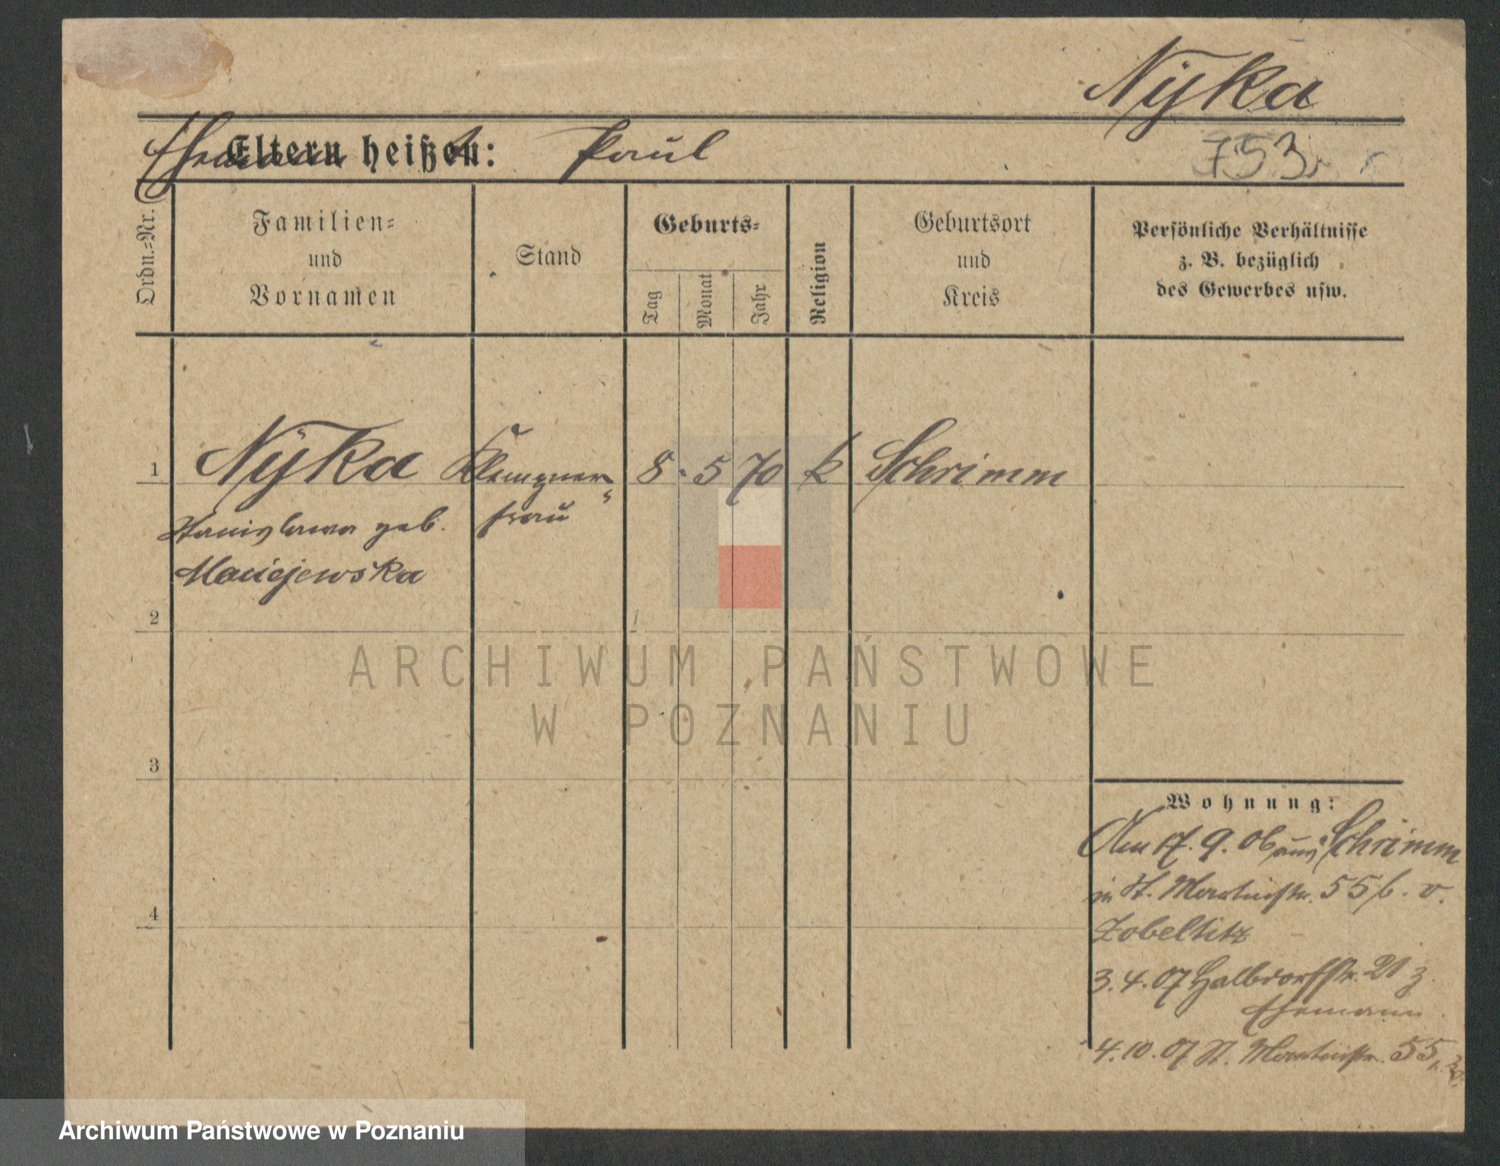 Nÿka
Eltern heißen:
Ehemann
Paul
753
Ordn.=Nr.
Familien=
und
Vornamen
Stand
Geburts=
Tag
Monat
Jahr
Religion
Geburtsort
und
Kreis
Persönliche Verhältnisse
z. B. bezüglich
des Gewerbes usw.
1
Nÿka Klempner 8. 5 70 k Schrimm
Stanislawa geb. frau
Maciejewska
2
ARCHIWUM PAŃSTWOWE
W POZNANIU
3
Wohnung:
Am 17. 9. 06 aus Schrimm
in St. Martinstr. 55 b. v.
Zobeltitz
4
3. 4. 07 Halbdorfstr. 21 z
Ehemann
4. 10. 07 St. Martinstr. 55
Archiwum Państwowe w Poznaniu